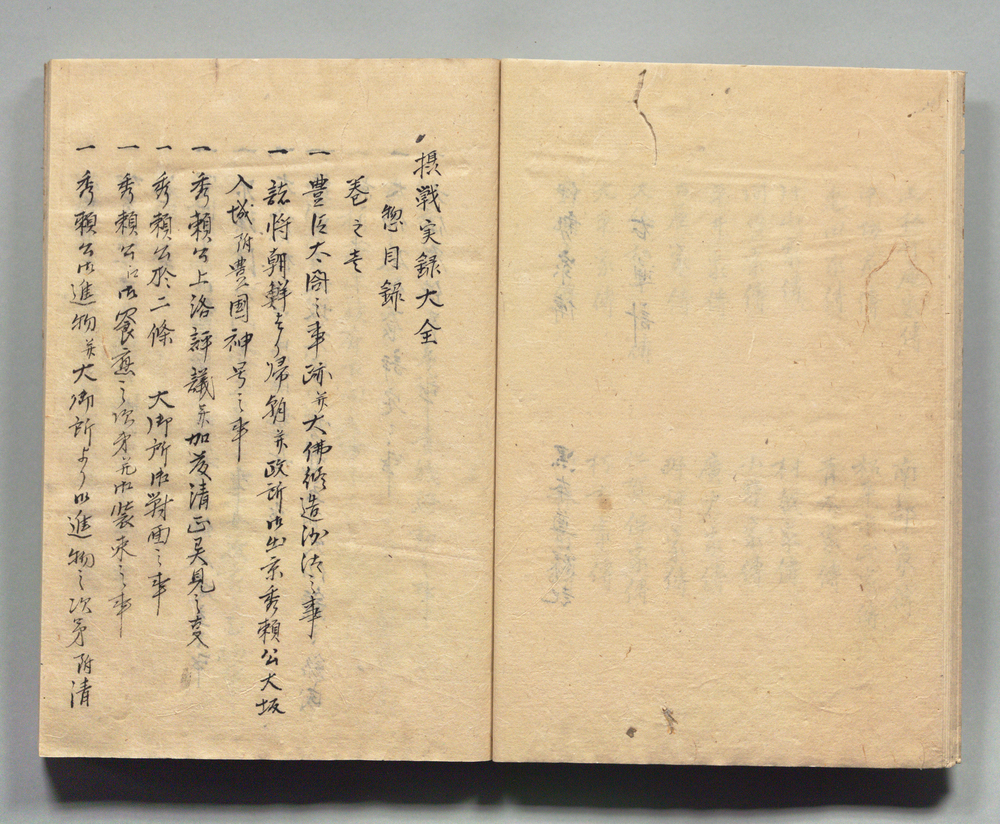 摂戦実録大全
惣目録
巻之壱
一 豊臣太閤之事跡并大佛修造沙汰之事
一 諸将朝鮮より帰朝并政所御出京秀頼公大坂
入城附豊国神号之事
一 秀頼公上洛評議并加茂清正異見之事
一 秀頼公於二條 大御所御対面之事
一 秀頼公江御饗應之次第并御装束之事
一 秀頼公御進物并大御所より御進物之次第附清